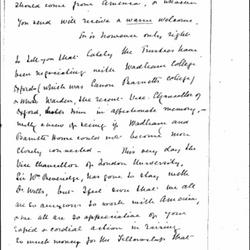 should come from America, a
You send will receive a warm welcome.
It is however only right
to tell you that lately the Trustees have
been negotiating with Wadham College
Oxford (which was Canon Barnett's college)
Warden, the recent Vice-Chancellor of
Oxford, him in affectionate memory,
with a view of seeing if Wadham and
Barnett House could not become more
closely connected. This very day the
Vice Chancellor of London University,
Sir Wm Beveridge, has gone to stay with
Dr Wells, but I feel sure that we all
are anxious to work with America,
we all are so appreciative of your
rapid & cordial action in raising
so much money for the Fellowship that